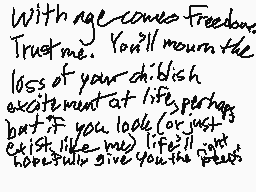 With age comes Freedom.
Trust me. You'll mourn the
loss of your childish
excitement at life, perhaps
but if you look (or just
exist like me) life'll
hopefully give you the right peeps